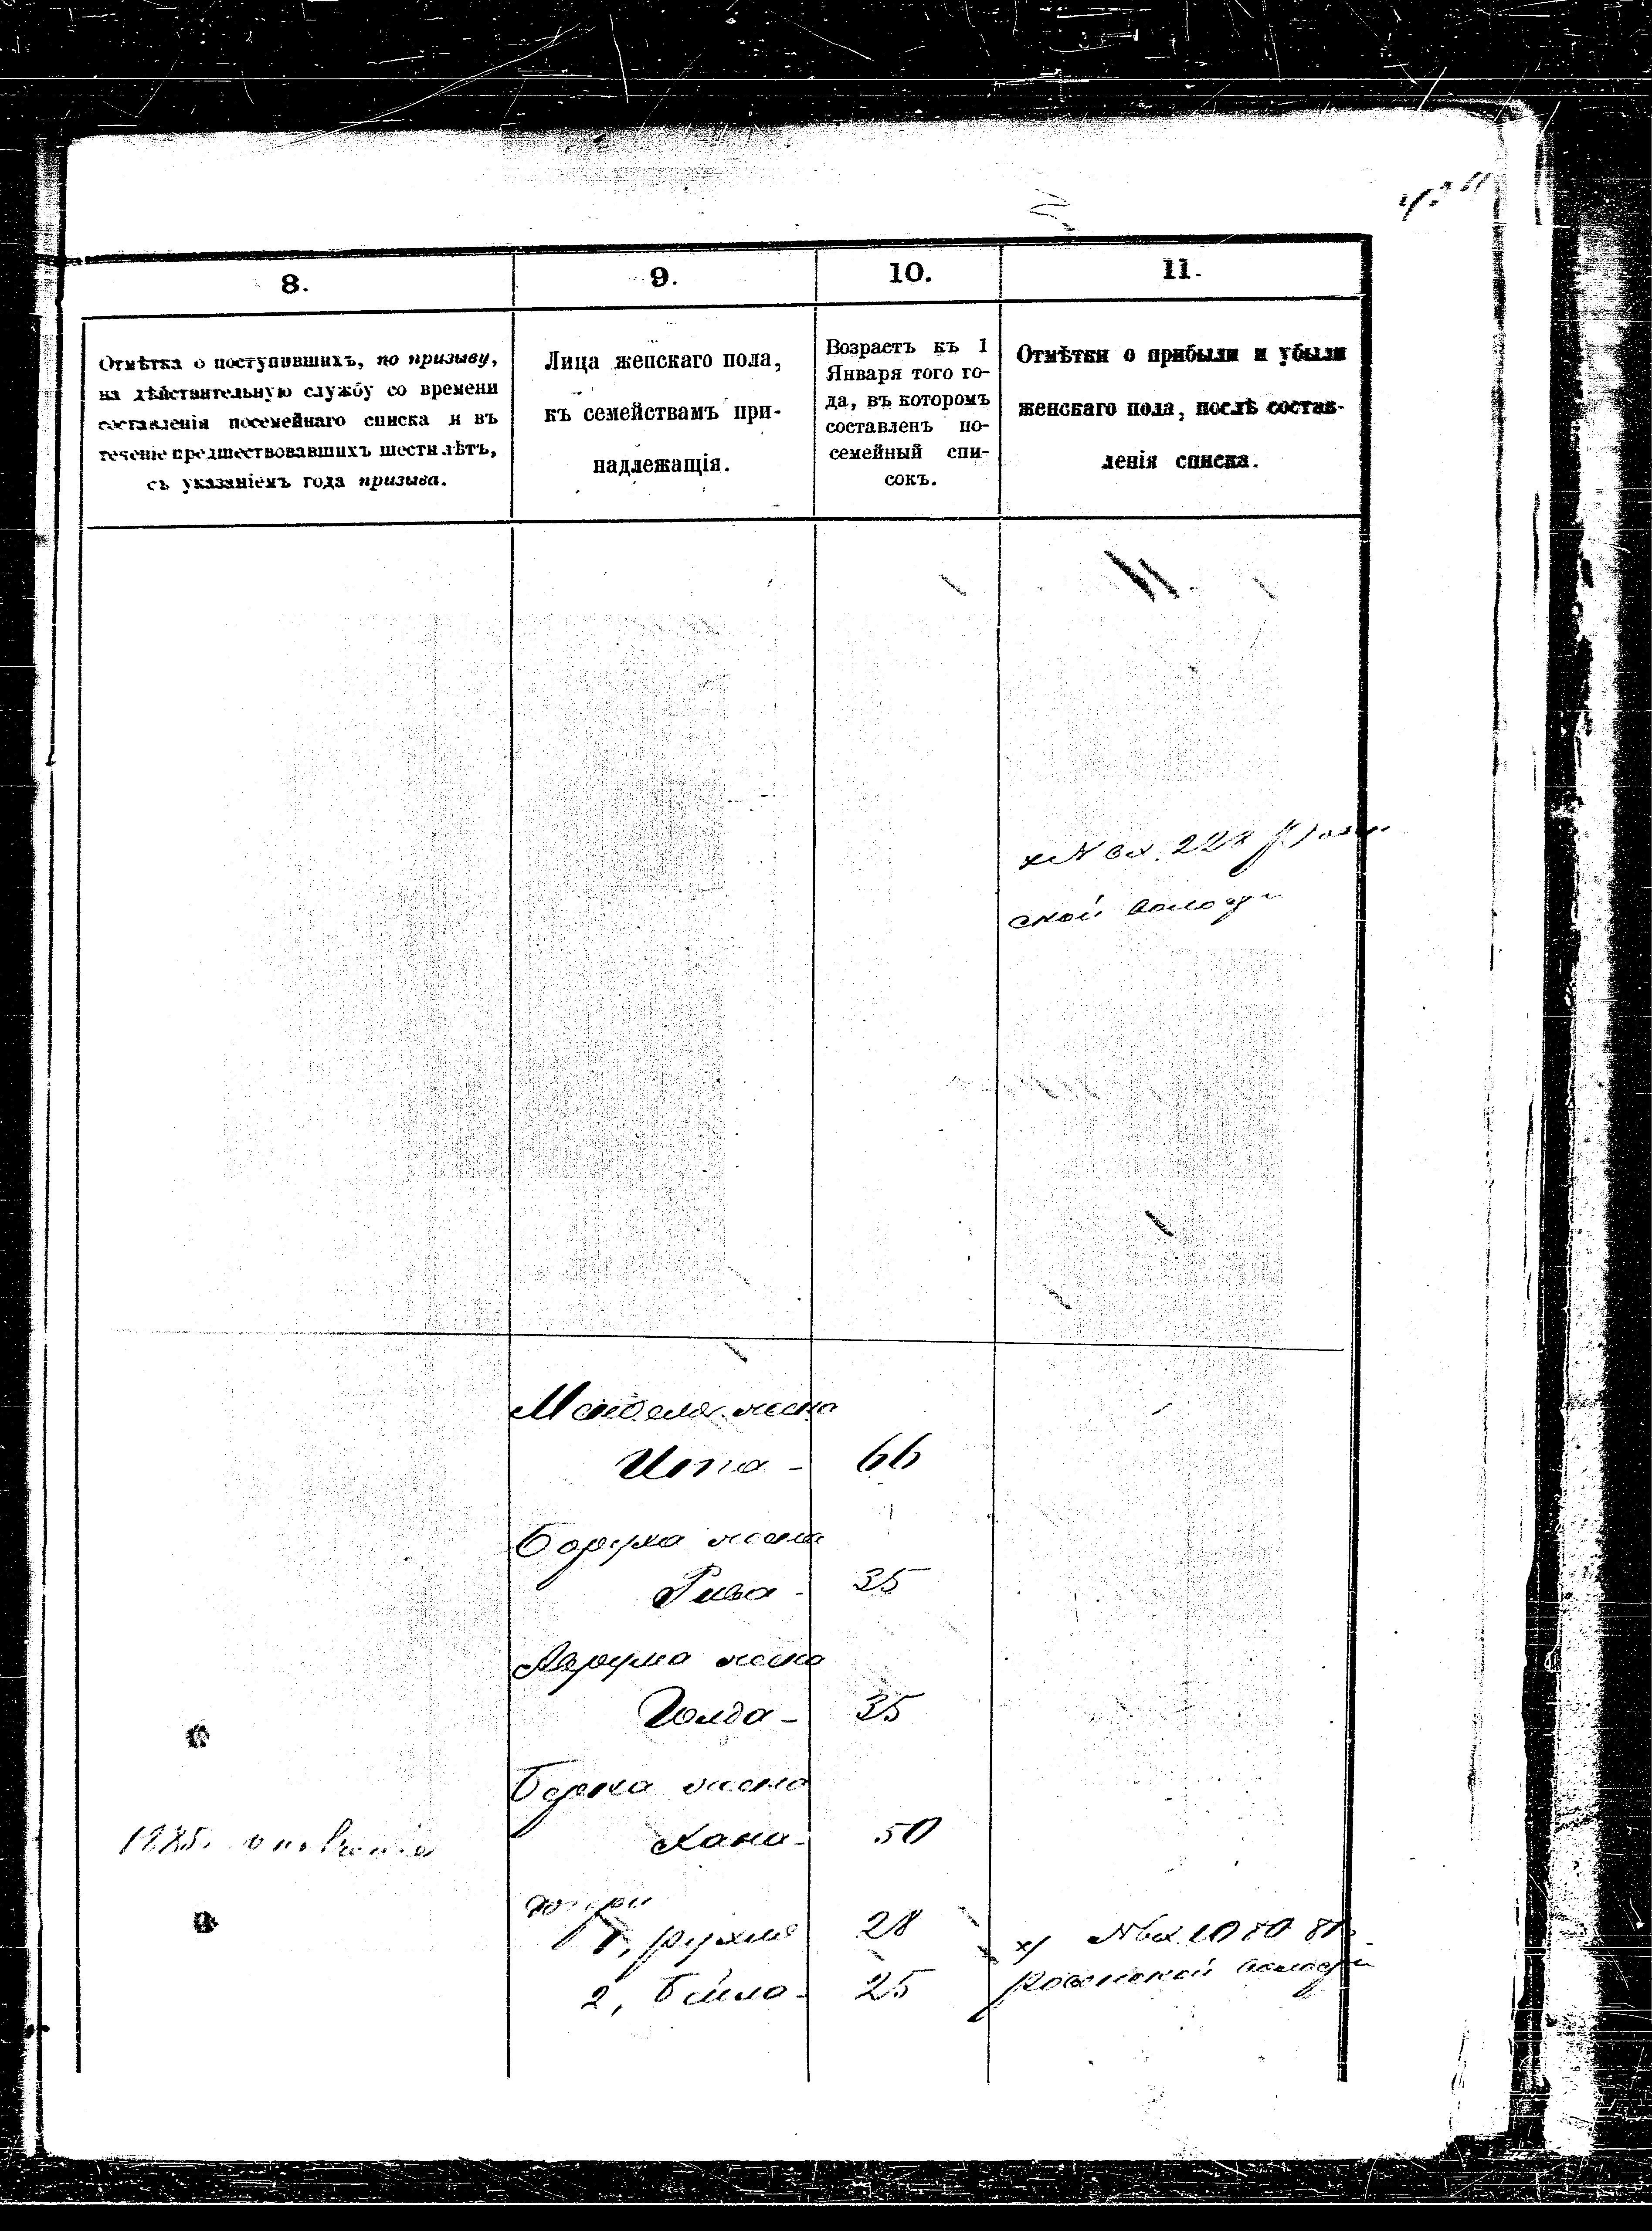 8.
9.
10.
11.
Отмѣтка о поступившихъ, по призыву,
на дѣйствительную службу со времени
составленія посемейнаго списка и въ
теченіе предшествовавшихъ шести лѣтъ,
съ указаніемъ года призыва.
Лица женскаго пола,
къ семействамъ при-
надлежащія.
Возрастъ къ 1
Января того го-
да, въ которомъ
составленъ по-
семейный спи-
сокъ.
Отмѣтки о прибыли и убыли
женскаго пола, послѣ состав-
ленія списка.
№ вх. 228
ской
Менделя жена
Ита - 66
Боруха жена
Рива - 35
Аврума жена
Голда - 35
Берка жена
Хана - 50
1885.
дочери
1, Рухля 28
х/ № вх. 1080
2, Бейла - 25